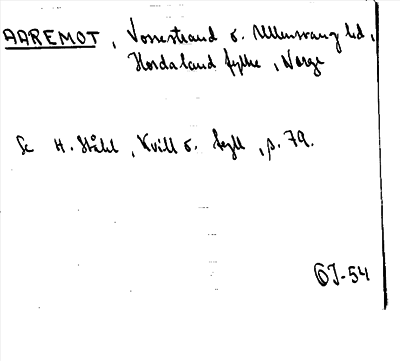 AAREMOT, Vossestrand o. Ullensvang hd,
Hordaland fylke, Norge
Se H. Ståhl, Kvill o. Tyll, p. 79.
OJ-54